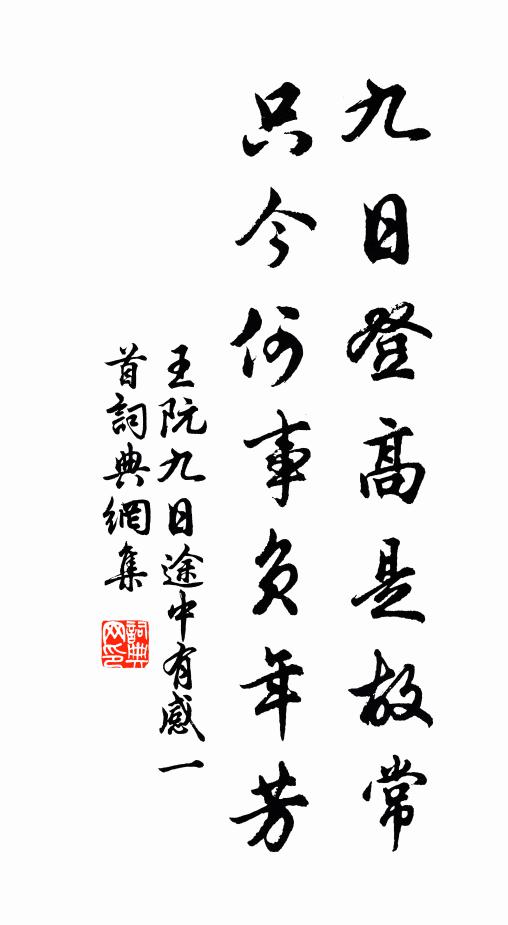 九日登高是故常
只今何事負年芳
王阮九日途中有感一
首詞典網集
詞典
网印